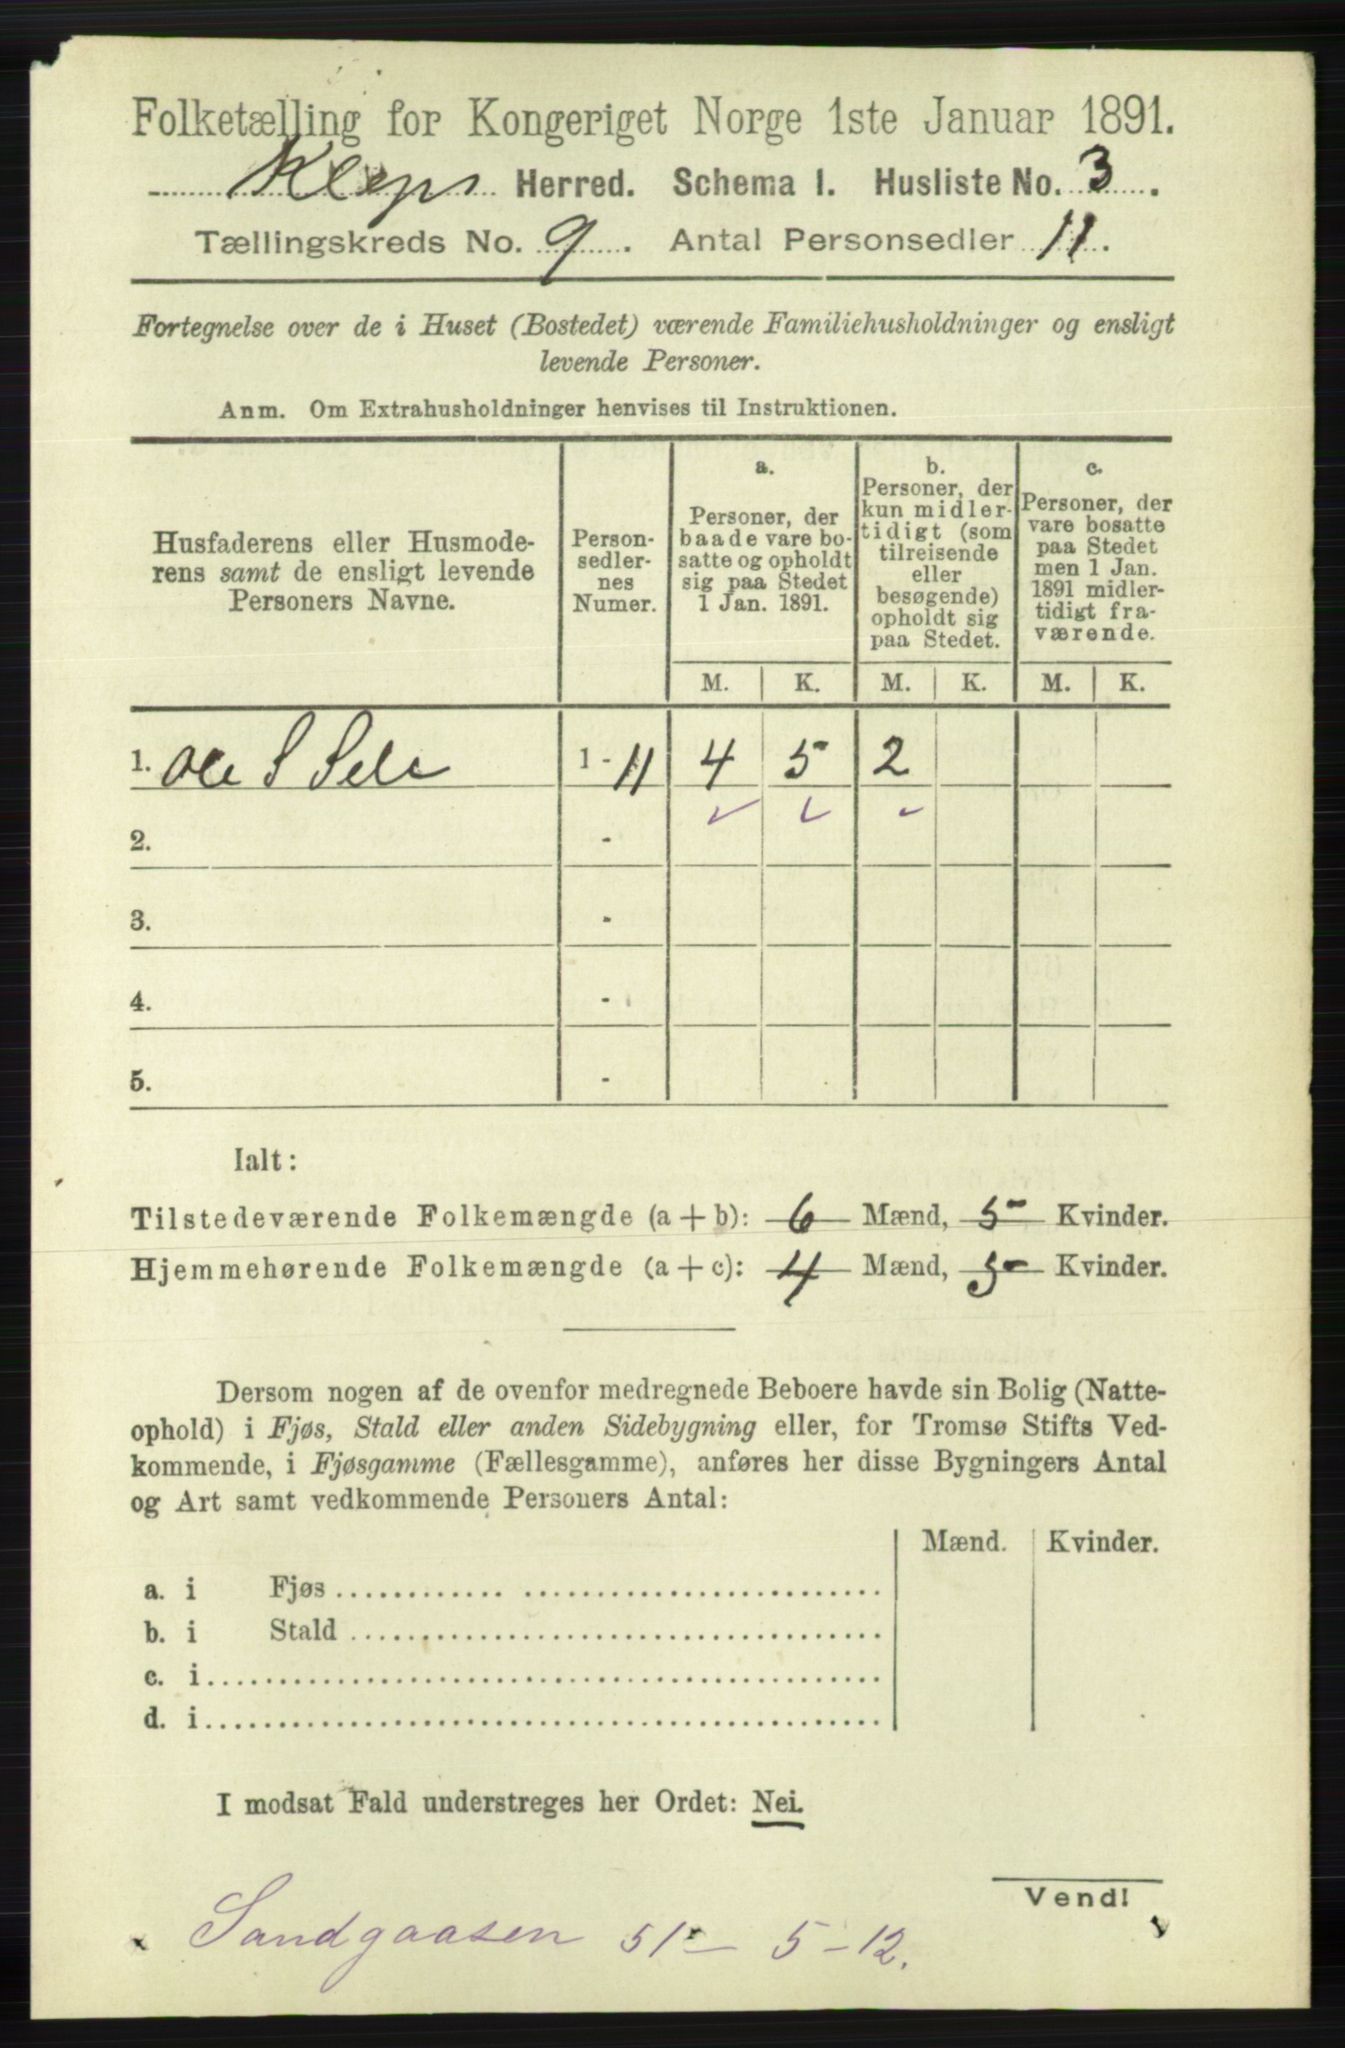 Folketælling for Kongeriget Norge 1ste Januar 1891.
Klepp Herred. Schema I. Husliste No. 3.
Tællingskreds No. 9. Antal Personsedler 11.
Fortegnelse over de i Huset (Bostedet) værende Familiehusholdninger og ensligt
levende Personer.
Anm. Om Extrahusholdninger henvises til Instruktionen.
Husfaderens eller Husmode-
rens samt de ensligt levende
Personers Navne.
Person-
sedler-
nes
Numer.
a.
Personer, der
baade vare bo-
satte og opholdt
sig paa Stedet
1 Jan. 1891.
b.
Personer, der
kun midler-
tidigt (som
tilreisende
eller
besøgende)
opholdt sig
paa Stedet.
c.
Personer, der
vare bosatte
paa Stedet
men 1 Jan.
1891 midler-
tidigt fra-
værende.
M. K. M. K. M. K.
1. Ole S Sele 1 - 11 4 5 2
2. -
3. -
4. -
5. -
Ialt:
Tilstedeværende Folkemængde (a + b): 6 Mænd, 5 Kvinder.
Hjemmehørende Folkemængde (a + c): 4 Mænd, 5 Kvinder.
Dersom nogen af de ovenfor medregnede Beboere havde sin Bolig (Natte-
ophold) i Fjøs, Stald eller anden Sidebygning eller, for Tromsø Stifts Ved-
kommende, i Fjøsgamme (Fællesgamme), anføres her disse Bygningers Antal
og Art samt vedkommende Personers Antal:
Mænd. Kvinder.
a. i Fjøs
b. i Stald
c. i
d. i
I modsat Fald understreges her Ordet: Nei.
Vend!
Sandgaasen 51 - 5 - 12.